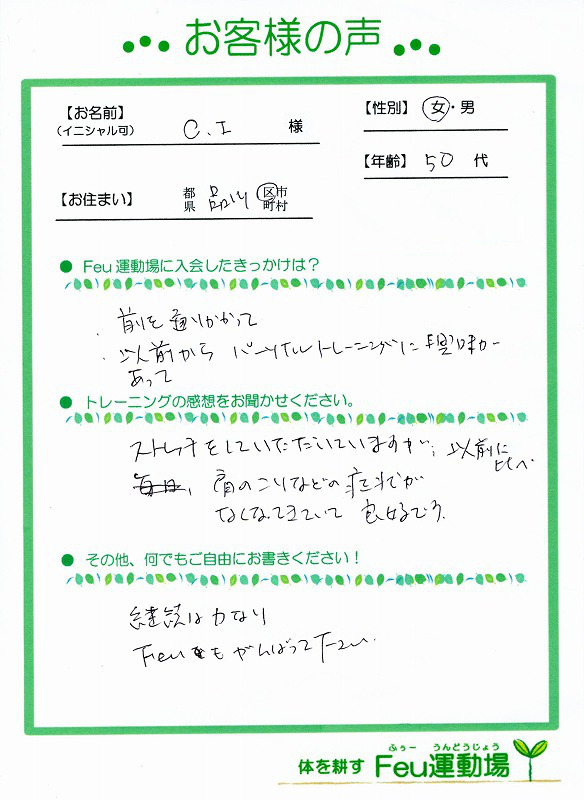 お客様の声
【お名前】
(イニシャル可)
C.I 様
【性別】 女・男
【年齢】 50 代
【お住まい】 都県 品川 区市町村
● Feu 運動場に入会したきっかけは?
・前を通りかかって
・以前から パーソナルトレーニングに興味が
あって
● トレーニングの感想をお聞かせください。
ストレッチをしていただいていますが、以前に
比べ
毎日、肩のこりなどの症状が
なくなってきていて 良好です。
● その他、何でもご自由にお書きください!
継続は力なり
Feuもがんばって下さい。
体を耕す Feu運動場
ふぅー うんどうじょう